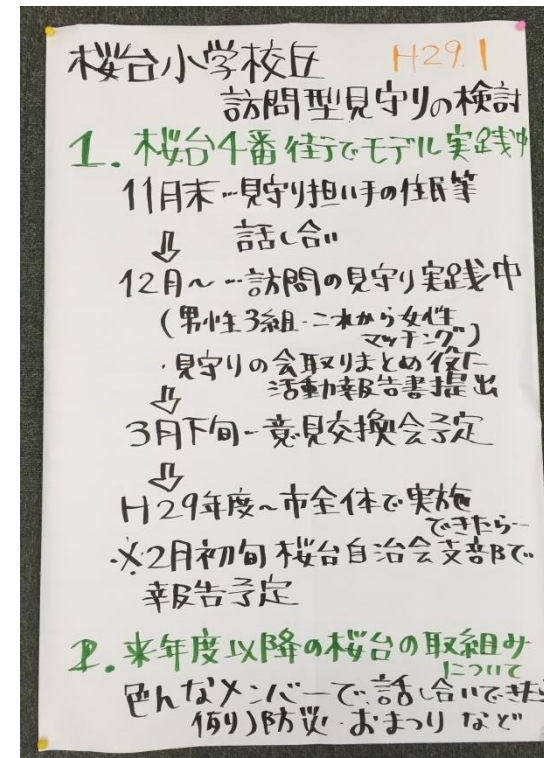 桜台小学校区 H29.1
訪問型見守りの検討
1. 桜台4番街でモデル実践中
11月末…見守り担い手の住民等
⇩ 話し合い
12月～…訪問の見守り実践中
(男性3組・これから女性
マッチング)
・見守りの会取りまとめ役に
活動報告書提出
⇩
3月下旬-意見交換会予定
⇩
H29年度～市全体で実施
できたら…
・※2月初旬 桜台自治会支部で
報告予定
2. 来年度以降の桜台の取組み
について
色んなメンバーで、話し合いできたら
例)防災・おまつり など